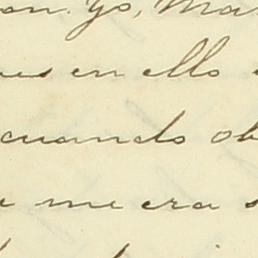 on. Yo, Ma
es en ello
cuando ob
e me era s